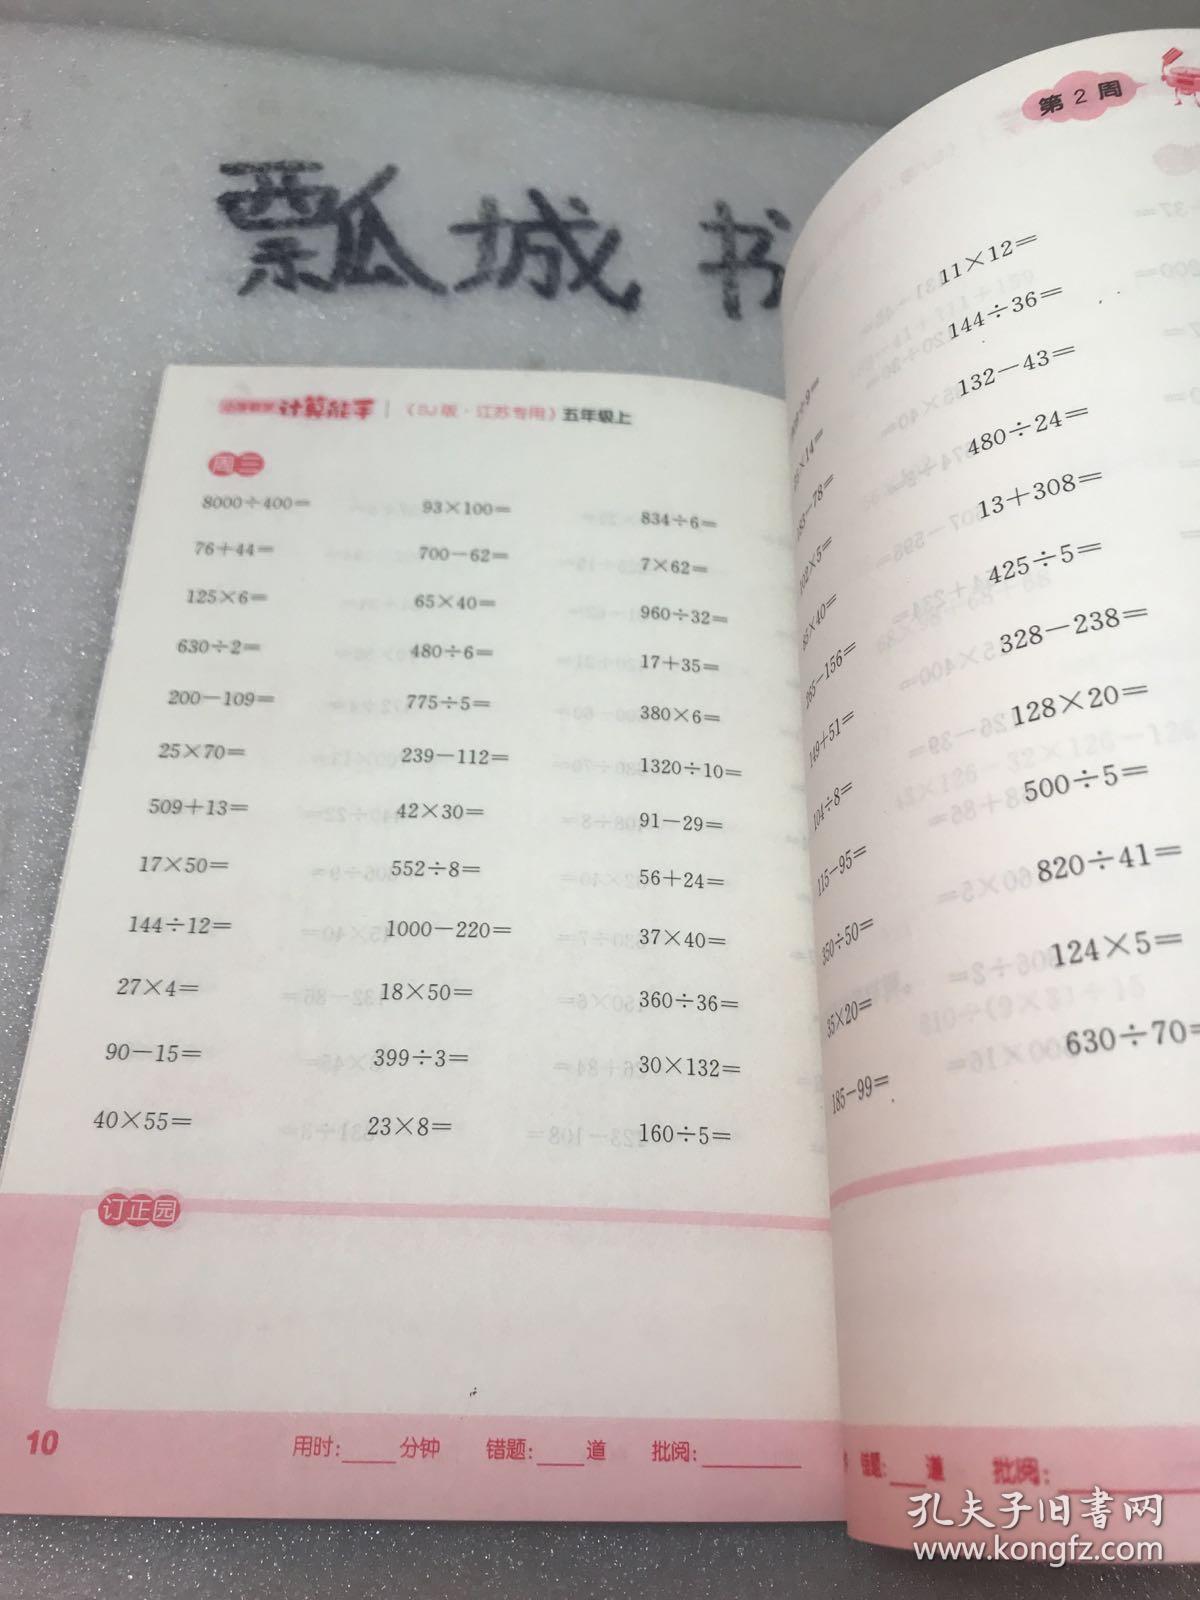 瓢城书
计算能手 (SJ版·江苏专用) 五年级上
周三
8000÷400= 93×100= 834÷6=
76+44= 700-62= 7×62=
125×6= 65×40= 960÷32=
630÷2= 480÷6= 17+35=
200-109= 775÷5= 380×6=
25×70= 239-112= 1320÷10=
509+13= 42×30= 91-29=
17×50= 552÷8= 56+24=
144÷12= 1000-220= 37×40=
27×4= 18×50= 360÷36=
90-15= 399÷3= 30×132=
40×55= 23×8= 160÷5=
订正园
10 用时: 分钟 错题: 道 批阅:
第2周
11×12=
144÷36=
132-43=
480÷24=
13+308=
102×5= 425÷5=
328-238=
149+51= 128×20=
104÷8= 500÷5=
115-95= 820÷41=
350÷50= 124×5=
35×20= 630÷70=
185-99=
错题: 道 批阅:
孔夫子旧书网
www.kongfz.com